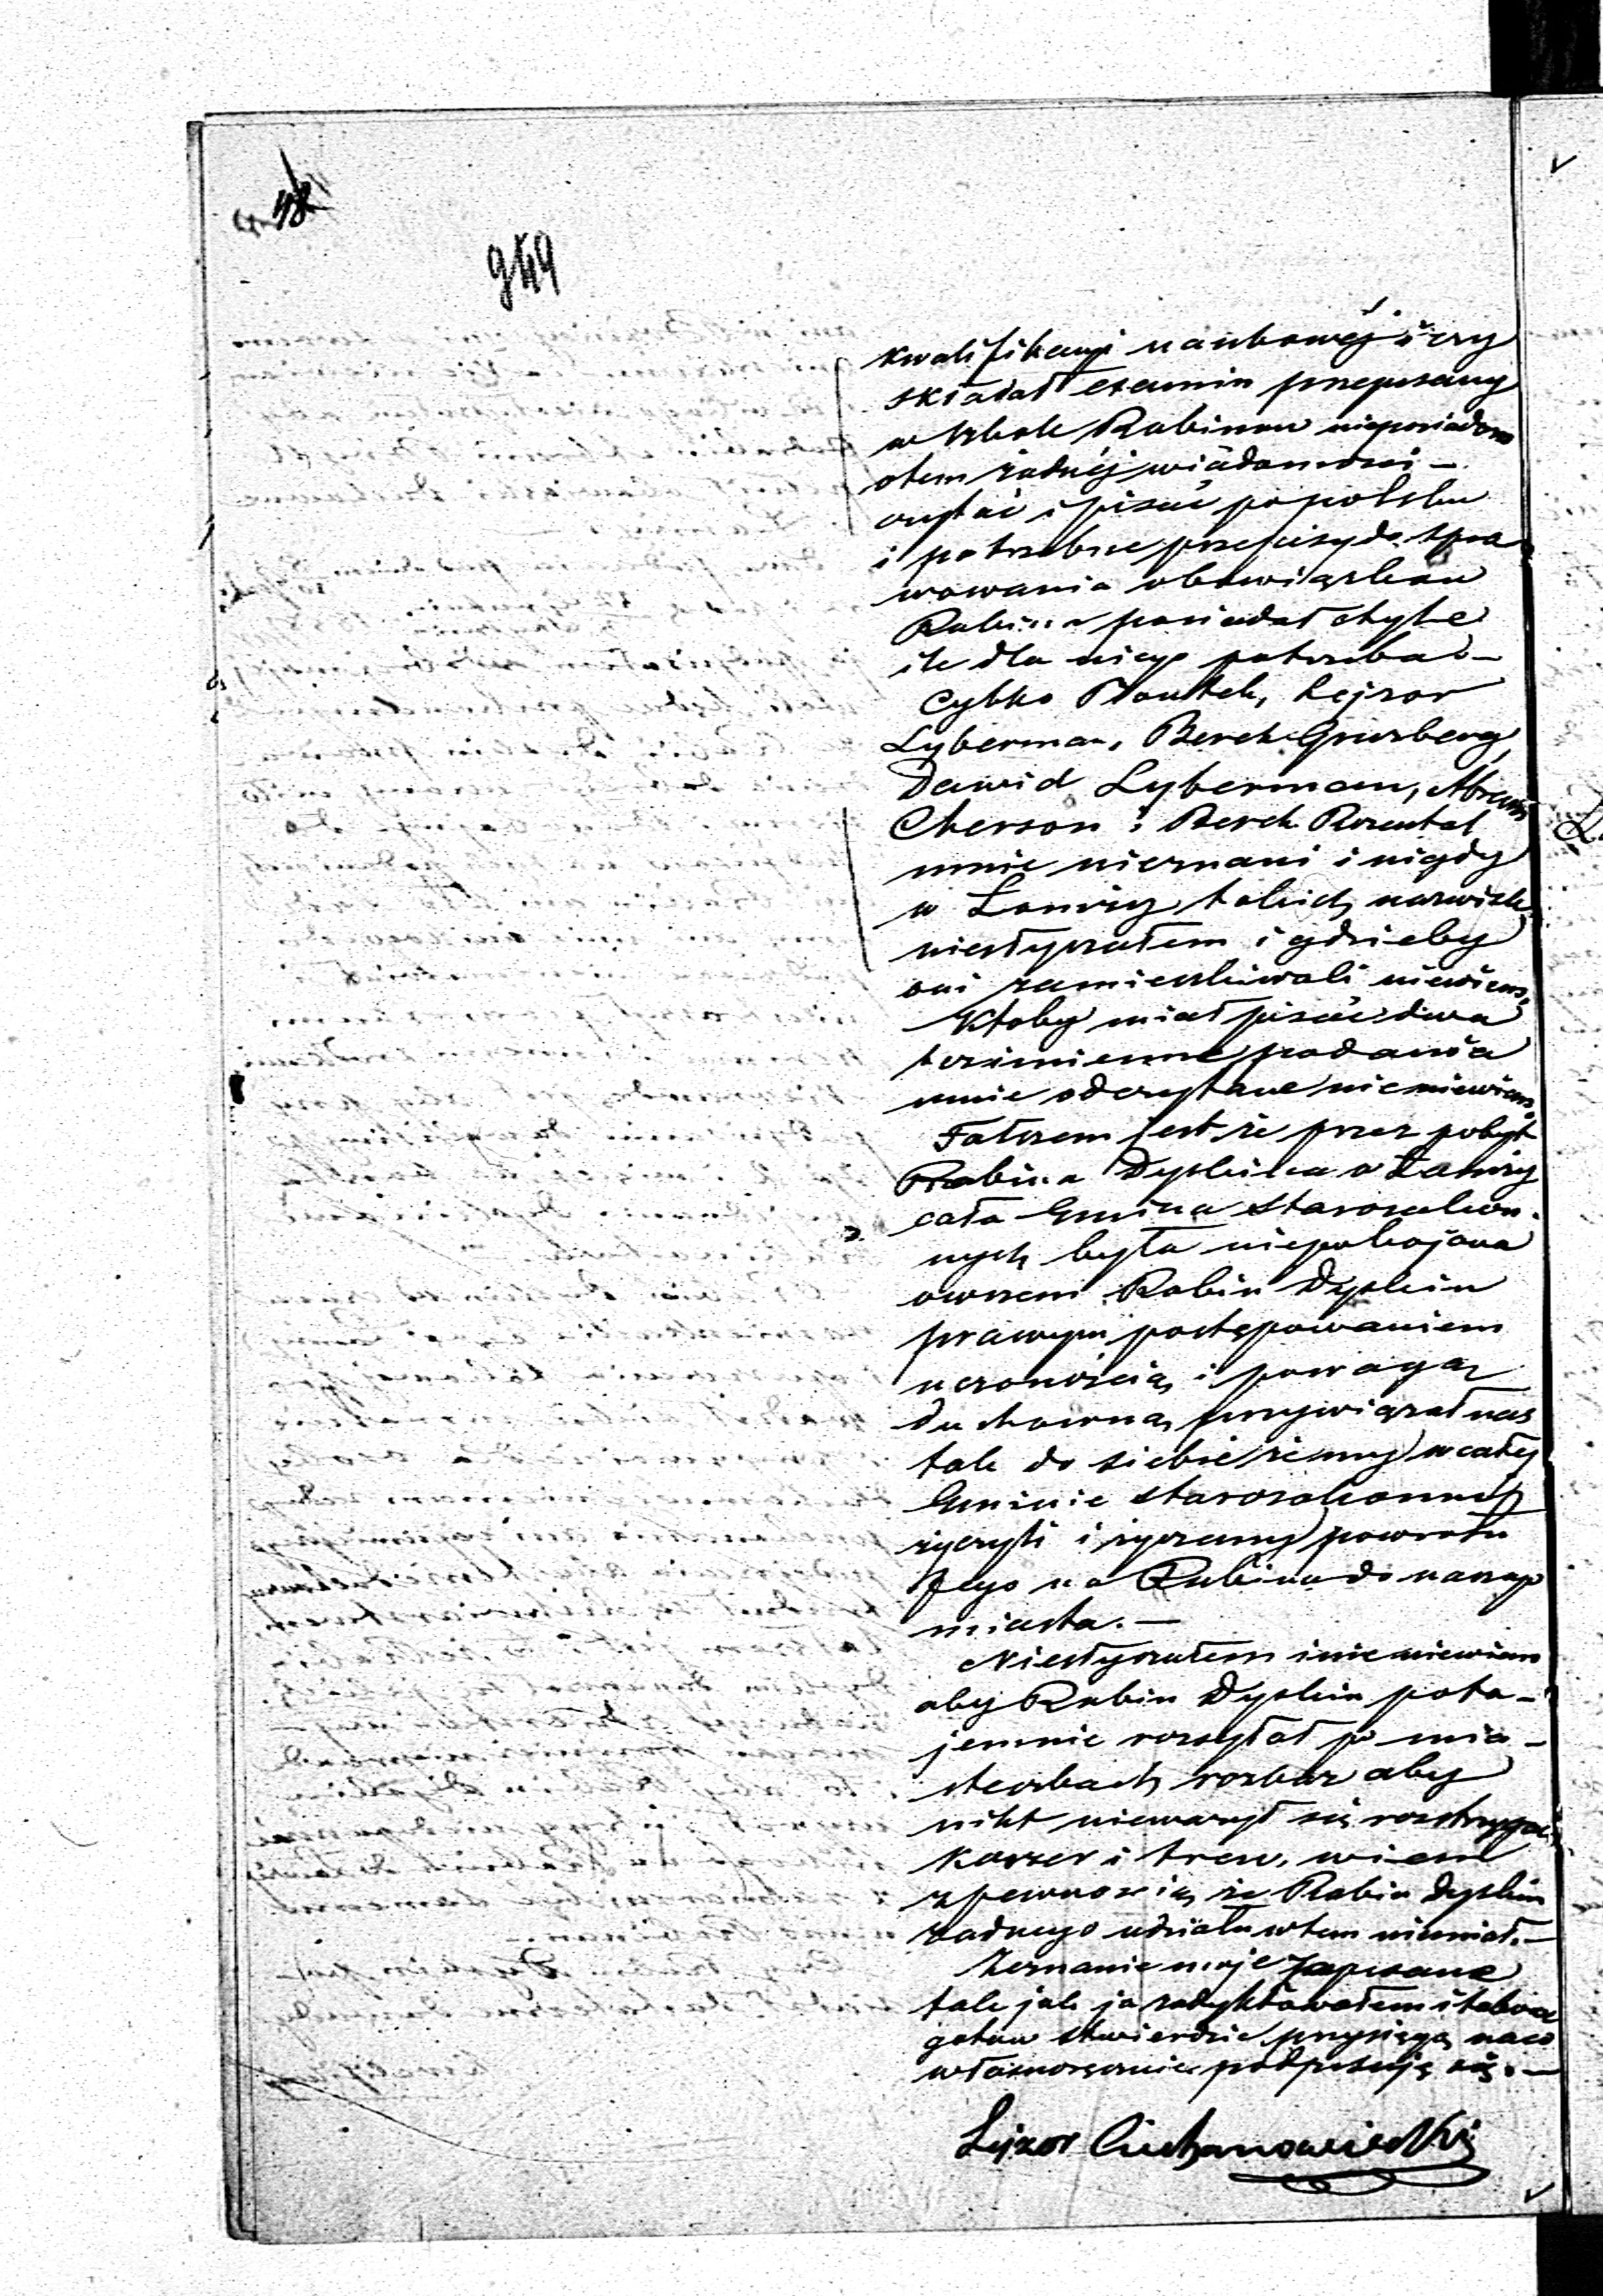 949
kwalifikacyi naukowéj i czy
składał examin przepisany
w szkole Rabinow nieposiadam
otem żadnéj wiadomosci –
czytać i pisać popolsku
i potrzebne przepisy do spra
wowania obowiązkow
Rabina posiadał otyle
ile dla niego potrzeba –
Cybko Lejzor
Lyberman, Berek Grinzberg,
Dawid Lyberman, Abram
Cherson i Berek Rozental
mnie nieznani i nigdy
w Łomży takich nazwisk
niesłyszałem i gdzieby
oni zamieszkiwali niewiem,
Ktoby miał pisać dwa
bezimienne podania
mnie odczytane nie niewiem.
Fałszem jest że przez pobyt
Rabina Dyskina w Łomży
cała Gmina Starozakon
nych była niepokojona
owszem Rabin Dyskin
prawym postępowaniem
uczonością i powagą
duchowną przywiązał nas
tak do siebie że my w całej
Gminie starozakonnéj
życzyli i życzemy powrotu
Jego na Rabina do naszego
miasta. –
Niesłyszałem i nie niewiem
aby Rabin Dyskin pota-
jemnie rozsyłał po mia-
steczkach rozkaz aby
nikt nieważył się rozstrzygać
Koszer i tref, wiem
z pewnoscią że Rabin Dyskin
żadnego udziału w tem niemiał. –
Zeznanie moje zapisane
tak jak ja zadyktowałem i takowe
gotow stwierdzic przysięgą naco
własnoręcznie podpisuję się. –
Lejzor Ciechanowiecki